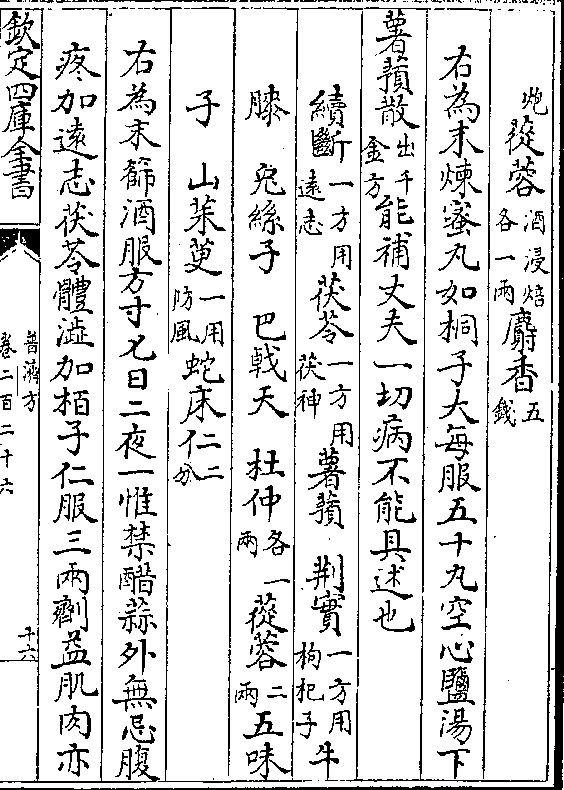 炮蓯蓉酒浸焙各一兩麝香五錢
右為末煉蜜丸如桐子大每服五十九空心鹽湯下
薯蕷散出千金方能補丈夫一切病不能具述也
續斷一方用遠志茯苓一方用茯神薯蕷荆實一方用枸杞子牛
膝兔絲子巴戟天杜仲各一兩蓯蓉二兩五味
子山茱萸一用防風蛇床仁二分
右為末篩酒服方寸匕日二夜一惟禁醋蒜外無忌腹
疼加遠志茯苓體澁加栢子仁服三兩劑益肌肉亦
欽定四庫全書
普濟方
卷二百二十六
十六